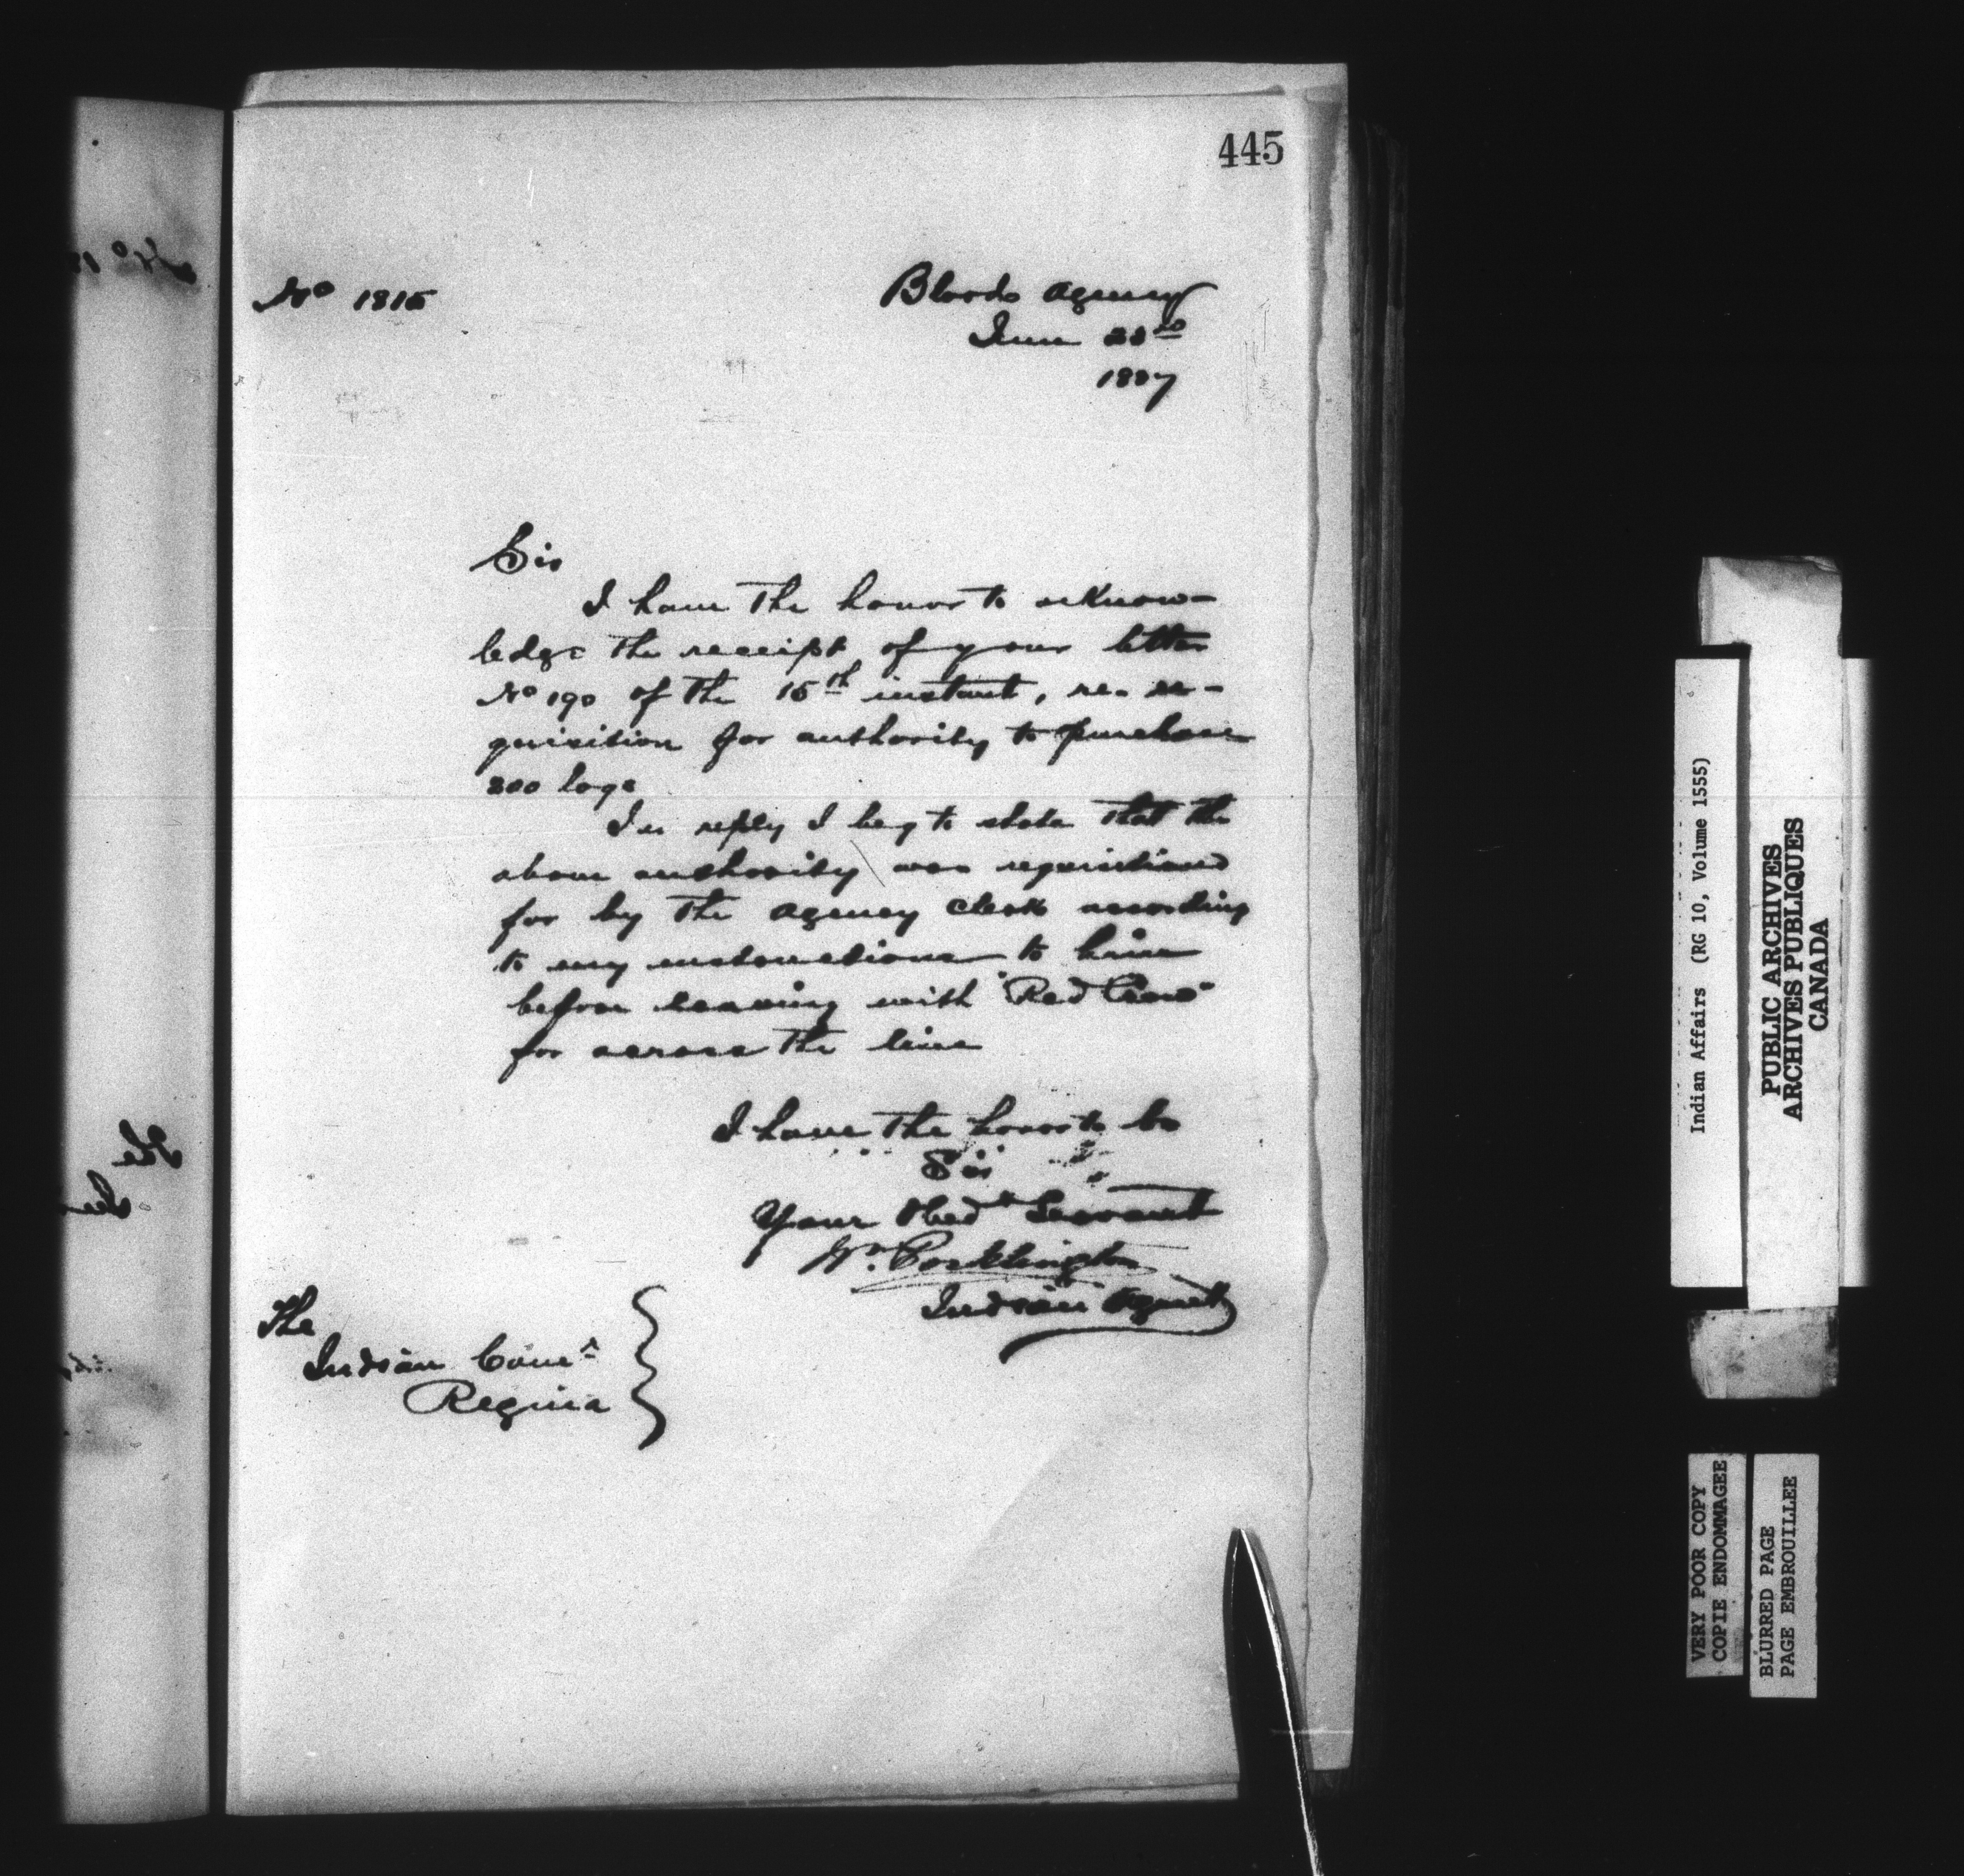 445
No 1815
Bloods Agency
June 22nd
1887
Sir
I have the honor to acknow-
ledge the receipt of your letter
No 190 of the 15th instant, re- re-
quisition for authority to purchase
200 logs
In reply I beg to state that the
above authority was requisitioned
for by the Agency Clerk according
to my instructions to him
before leaving with "Red Crow"
for across the line
I have the honor to be
Sir
Your Obedt Servant
Wm. Pocklington
Indian Agent
The
Indian Comr
Regina
Indian Affairs (RG 10, Volume 1555)
PUBLIC ARCHIVES
ARCHIVES PUBLIQUES
CANADA
VERY POOR COPY
COPIE ENDOMMAGEE
BLURRED PAGE
PAGE EMBROUILLEE